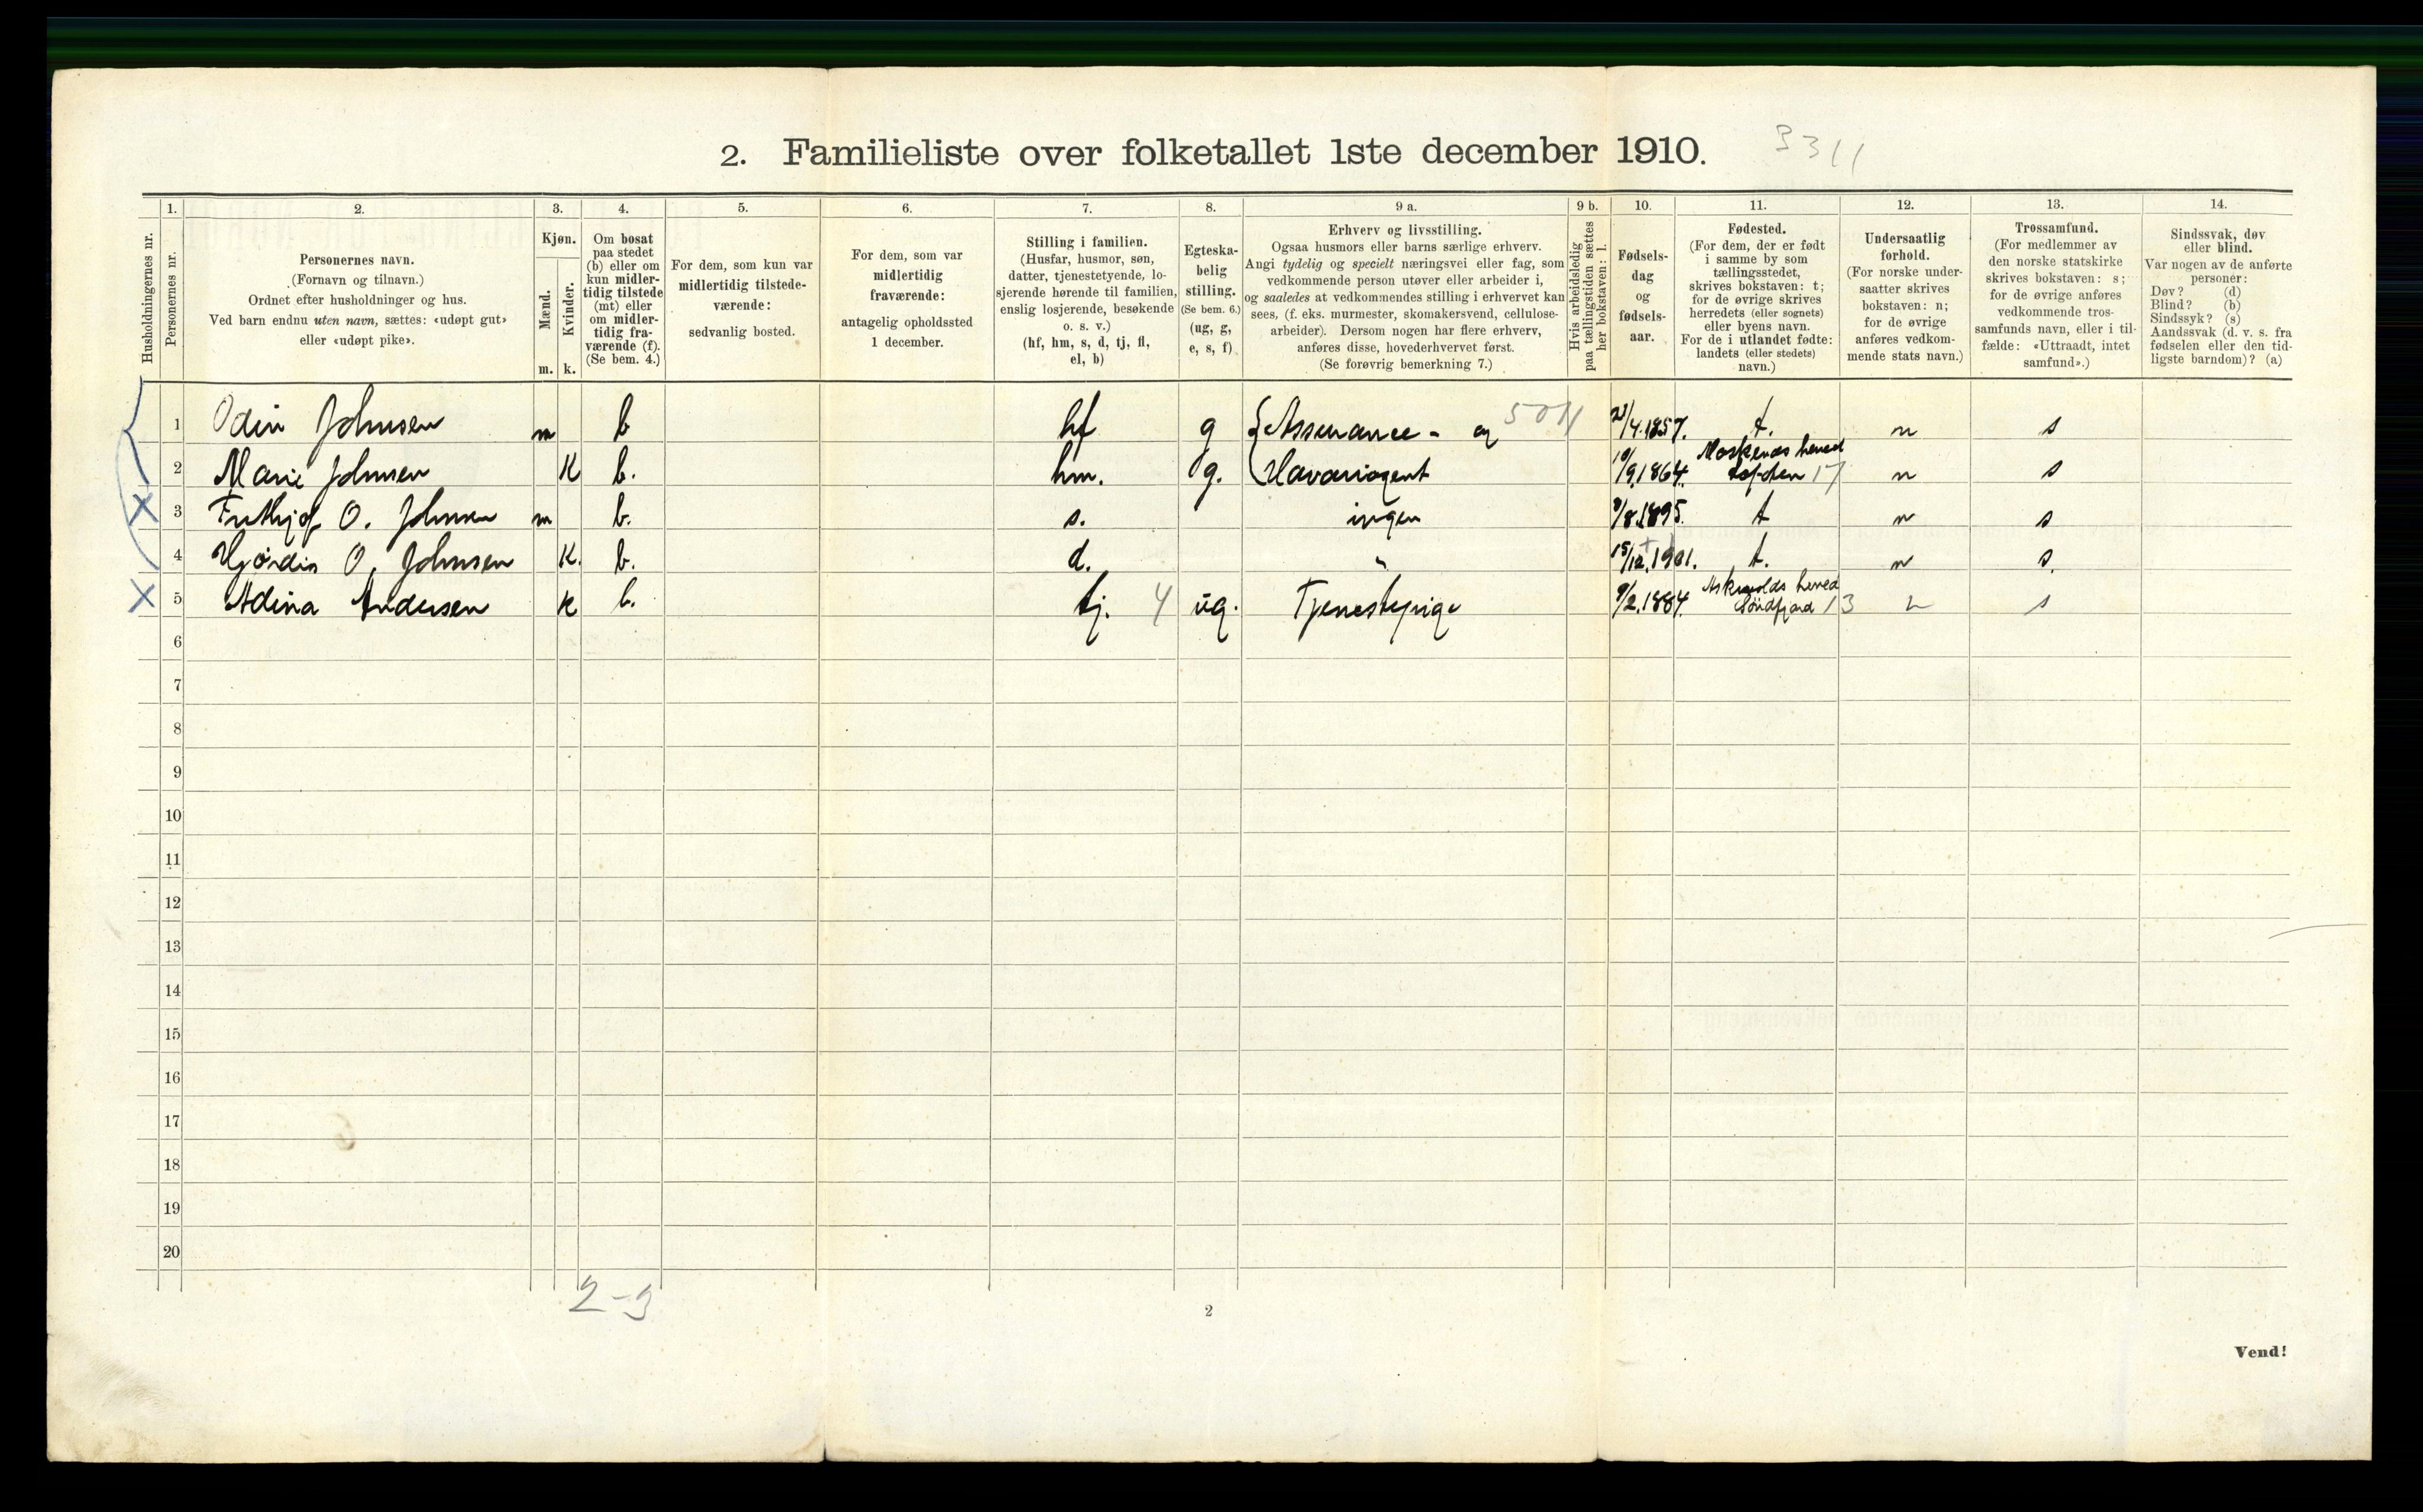 2. Familieliste over folketallet 1ste december 1910.
3311
Husholdningernes nr.
1.
Personernes nr.
2.
Personernes navn.
(Fornavn og tilnavn.)
Ordnet efter husholdninger og hus.
Ved barn endnu uten navn, sættes: «udøpt gut»
eller «udøpt pike».
3.
Kjøn.
Mænd.
Kvinder.
m. k.
4.
Om bosat
paa stedet
(b) eller om
kun midler-
tidig tilstede
(mt) eller
om midler-
tidig fra-
værende (f).
(Se bem. 4.)
5.
For dem, som kun var
midlertidig tilstede-
værende:
sedvanlig bosted.
6.
For dem, som var
midlertidig
fraværende:
antagelig opholdssted
1 december.
7.
Stilling i familien.
(Husfar, husmor, søn,
datter, tjenestetyende, lo-
sjerende hørende til familien,
enslig losjerende, besøkende
o. s. v.)
(hf, hm, s, d, tj, fl,
el, b)
8.
Egteska-
belig
stilling.
(Se bem. 6.)
(ug, g,
e, s, f)
9 a.
Erhverv og livsstilling.
Ogsaa husmors eller barns særlige erhverv.
Angi tydelig og specielt næringsvei eller fag, som
vedkommende person utøver eller arbeider i,
og saaledes at vedkommendes stilling i erhvervet kan
sees, (f. eks. murmester, skomakersvend, cellulose-
arbeider). Dersom nogen har flere erhverv,
anføres disse, hovederhvervet først.
(Se forøvrig bemerkning 7.)
9 b.
Hvis arbeidsledig
paa tællingstiden sættes
her bokstaven: l.
10.
Fødsels-
dag
og
fødsels-
aar.
11.
Fødested.
(For dem, der er født
i samme by som
tællingsstedet,
skrives bokstaven: t;
for de øvrige skrives
herredets (eller sognets)
eller byens navn.
For de i utlandet fødte:
landets (eller stedets)
navn.)
12.
Undersaatlig
forhold.
(For norske under-
saatter skrives
bokstaven: n;
for de øvrige
anføres vedkom-
mende stats navn.)
13.
Trossamfund.
(For medlemmer av
den norske statskirke
skrives bokstaven: s;
for de øvrige anføres
vedkommende tros-
samfunds navn, eller i til-
fælde: «Uttraadt, intet
samfund».)
14.
Sindssvak, døv
eller blind.
Var nogen av de anførte
personer:
Døv? (d)
Blind? (b)
Sindssyk? (s)
Aandssvak (d. v. s. fra
fødselen eller den tid-
ligste barndom)? (a)
1 Odin Johnsen m b hf g Assurance- og 50 /4.1857. t. n s
2 Marie Johnsen K b. hm. g. Havariagent 10/9.1864. Moskenes herred Lofoten 17 n s
3 Frithjof O. Johnsen m b. s. ingen /8.1895. t n s
4 Hjørdis O. Johnsen K. b. d. " 15/12.1901. t. n s.
5 Adina Andersen k b. tj. 4 ug. Tjenestepige 9/2.1884. Askvolds herred Søndfjord 13 n s
6
7
8
9
10
11
12
13
14
15
16
17
18
19
20
2-3
2
Vend!